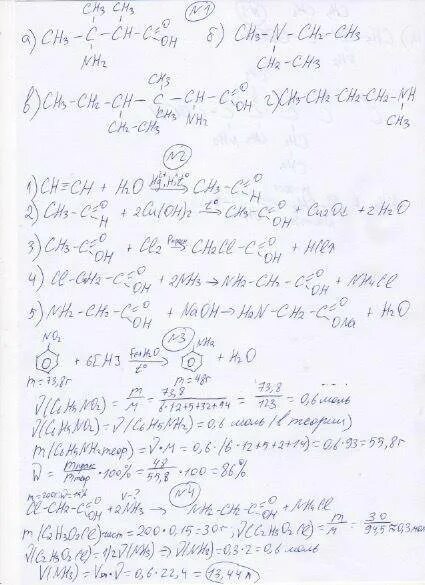 №1
CH3 CH3
а) CH3-C-CH-C=O OH б) CH3-N-CH2-CH3
NH2 CH2-CH3
CH3
в) CH3-CH2-CH-C-CH-C=O OH г) CH3-CH2-CH2-CH2-NH
CH2-CH3 CH3 NH2 CH3
№2
1) CH≡CH + H2O Hg2+, H+, t° → CH3-C=O H
2) CH3-C=O H + 2Cu(OH)2 t° → CH3-C=O OH + Cu2O↓ + 2H2O
3) CH3-C=O OH + Cl2 → CH2Cl-C=O OH + HCl↑
4) Cl-CH2-C=O OH + 2NH3 → NH2-CH2-C=O OH + NH4Cl
5) NH2-CH2-C=O OH + NaOH → H2N-CH2-C=O ONa + H2O
№3
NO2 NH2
+ 6[H] Fe+H2O t° → + H2O
m=73,8г m=48г
ν(C6H5NO2) = m/M = 73,8/6·12+5+32+14 = 73,8/123 = 0,6 моль
ν(C6H5NO2) = ν(C6H5NH2) = 0,6 моль (в теории)
m(C6H5NH2 теор) = ν·M = 0,6·(6·12+5+2+14) = 0,6·93 = 55,8г
W = m практ/m теор ·100% = 48/55,8 ·100 = 86%
m=200г W=15% V-? №4
Cl-CH2-C=O OH + 2NH3 → NH2-CH2-C=O OH + NH4Cl
m(C2H3O2Cl)чист = 200·0,15 = 30г, ν(C2H3O2Cl) = m/M = 30/94,5 = 0,3 моль
ν(C2H3O2Cl) = 1/2 ν(NH3) ⇒ ν(NH3) = 0,3·2 = 0,6 моль
V(NH3) = Vm·ν = 0,6·22,4 = 13,44л